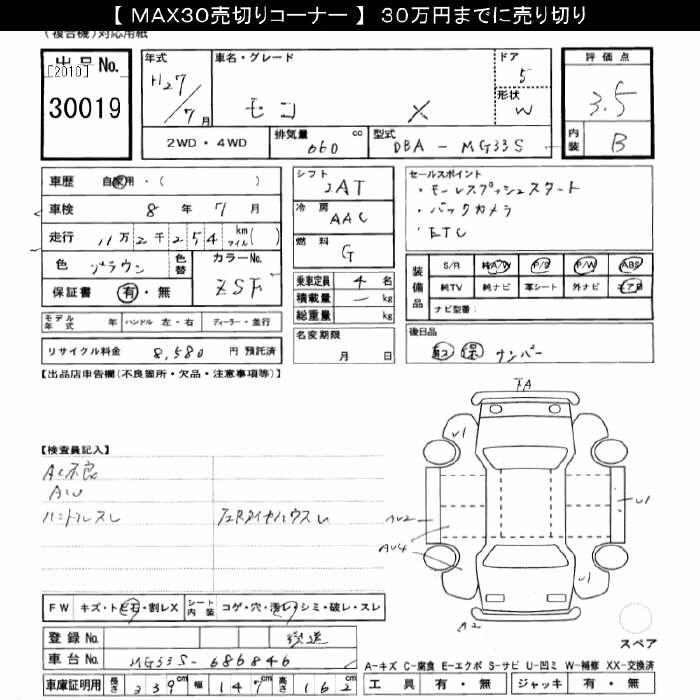 【 MAX30売切りコーナー 】 30万円までに売り切り
(複合機)対応用紙
出品No.
[2010]
30019
年式
H27/7月
車名・グレード
モコ X
ドア
5
形状
W
評価点
3.5
内装
B
2WD・4WD
排気量 660 cc
型式 DBA - MG33S
車歴 自家用・( )
車検 8年 7月
走行 11万2千254 km マイル( )
色 ブラウン
色替
カラーNo. ZSF
保証書 有・無
シフト
IAT
冷房
AAC
燃料
G
乗車定員 4名
積載量 - kg
総重量 kg
セールスポイント
・キーレスプッシュスタート
・バックカメラ
・ETC
装備品
S/R 純A/W P/S P/W ABS
純TV 純ナビ 革シート 外ナビ エアB
ナビ型番:
モデル年式 年 ハンドル 左・右 ディーラー・並行
リサイクル料金 8,580 円 預託済
名変期限
月 日
後日品
記 保 ナンバー
【出品店申告欄(不良箇所・欠品・注意事項等)】
【検査員記入】
AC不良
AU
ハンドルスレ
FA
U1
U1
AU2
AU4
U1
A2
FW キズ・トビ石・割レX
シート内装 コゲ・穴・汚レ・シミ・破レ・スレ
登録No. 後送
車台No. MG33S-686846
車庫証明用 長さ 339cm 幅 147cm 高さ 162cm
スペア
A-キズ C-腐食 E-エクボ S-サビ U-凹ミ W-補修 XX-交換済
工具 有・無 ジャッキ 有・無